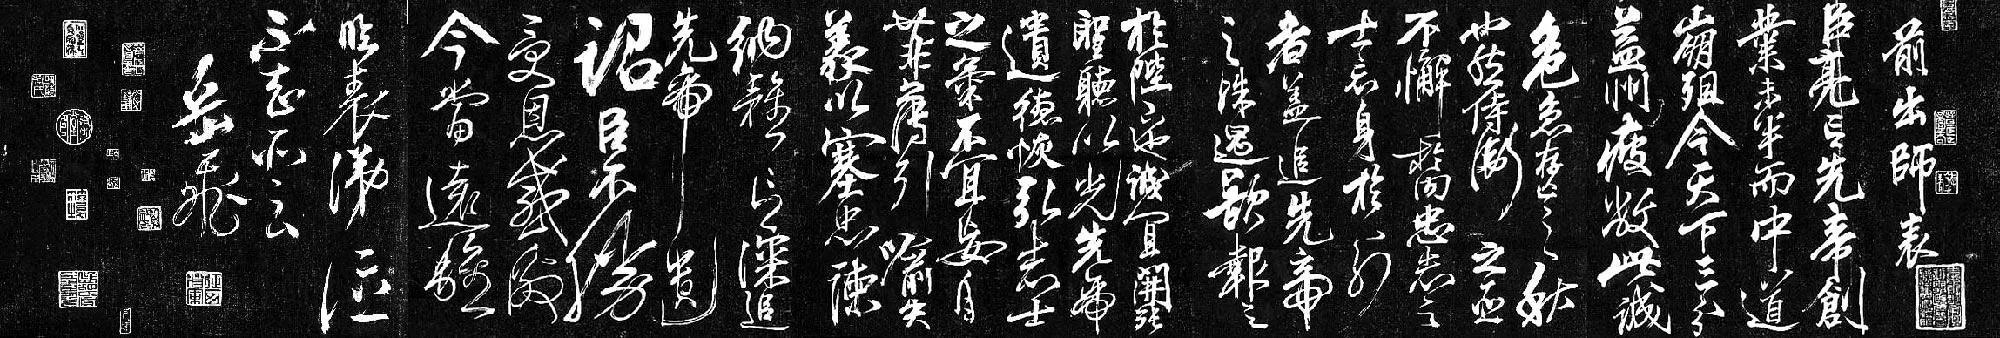 前出師表
臣亮言先帝創
業未半而中道
崩殂今天下三分
益州疲敝此誠
危急存亡之秋
也然侍衛之臣
不懈於內忠志之
士忘身於外
者蓋追先帝
之殊遇欲報之
於陛下也誠宜開張
聖聽以光先帝
遺德恢弘志士
之氣不宜妄自
菲薄引喻失
義以塞忠諫
納雅言深追
先帝遺
詔臣不勝
受恩感激
今當遠離
臨表涕泣
不知所云
岳飛